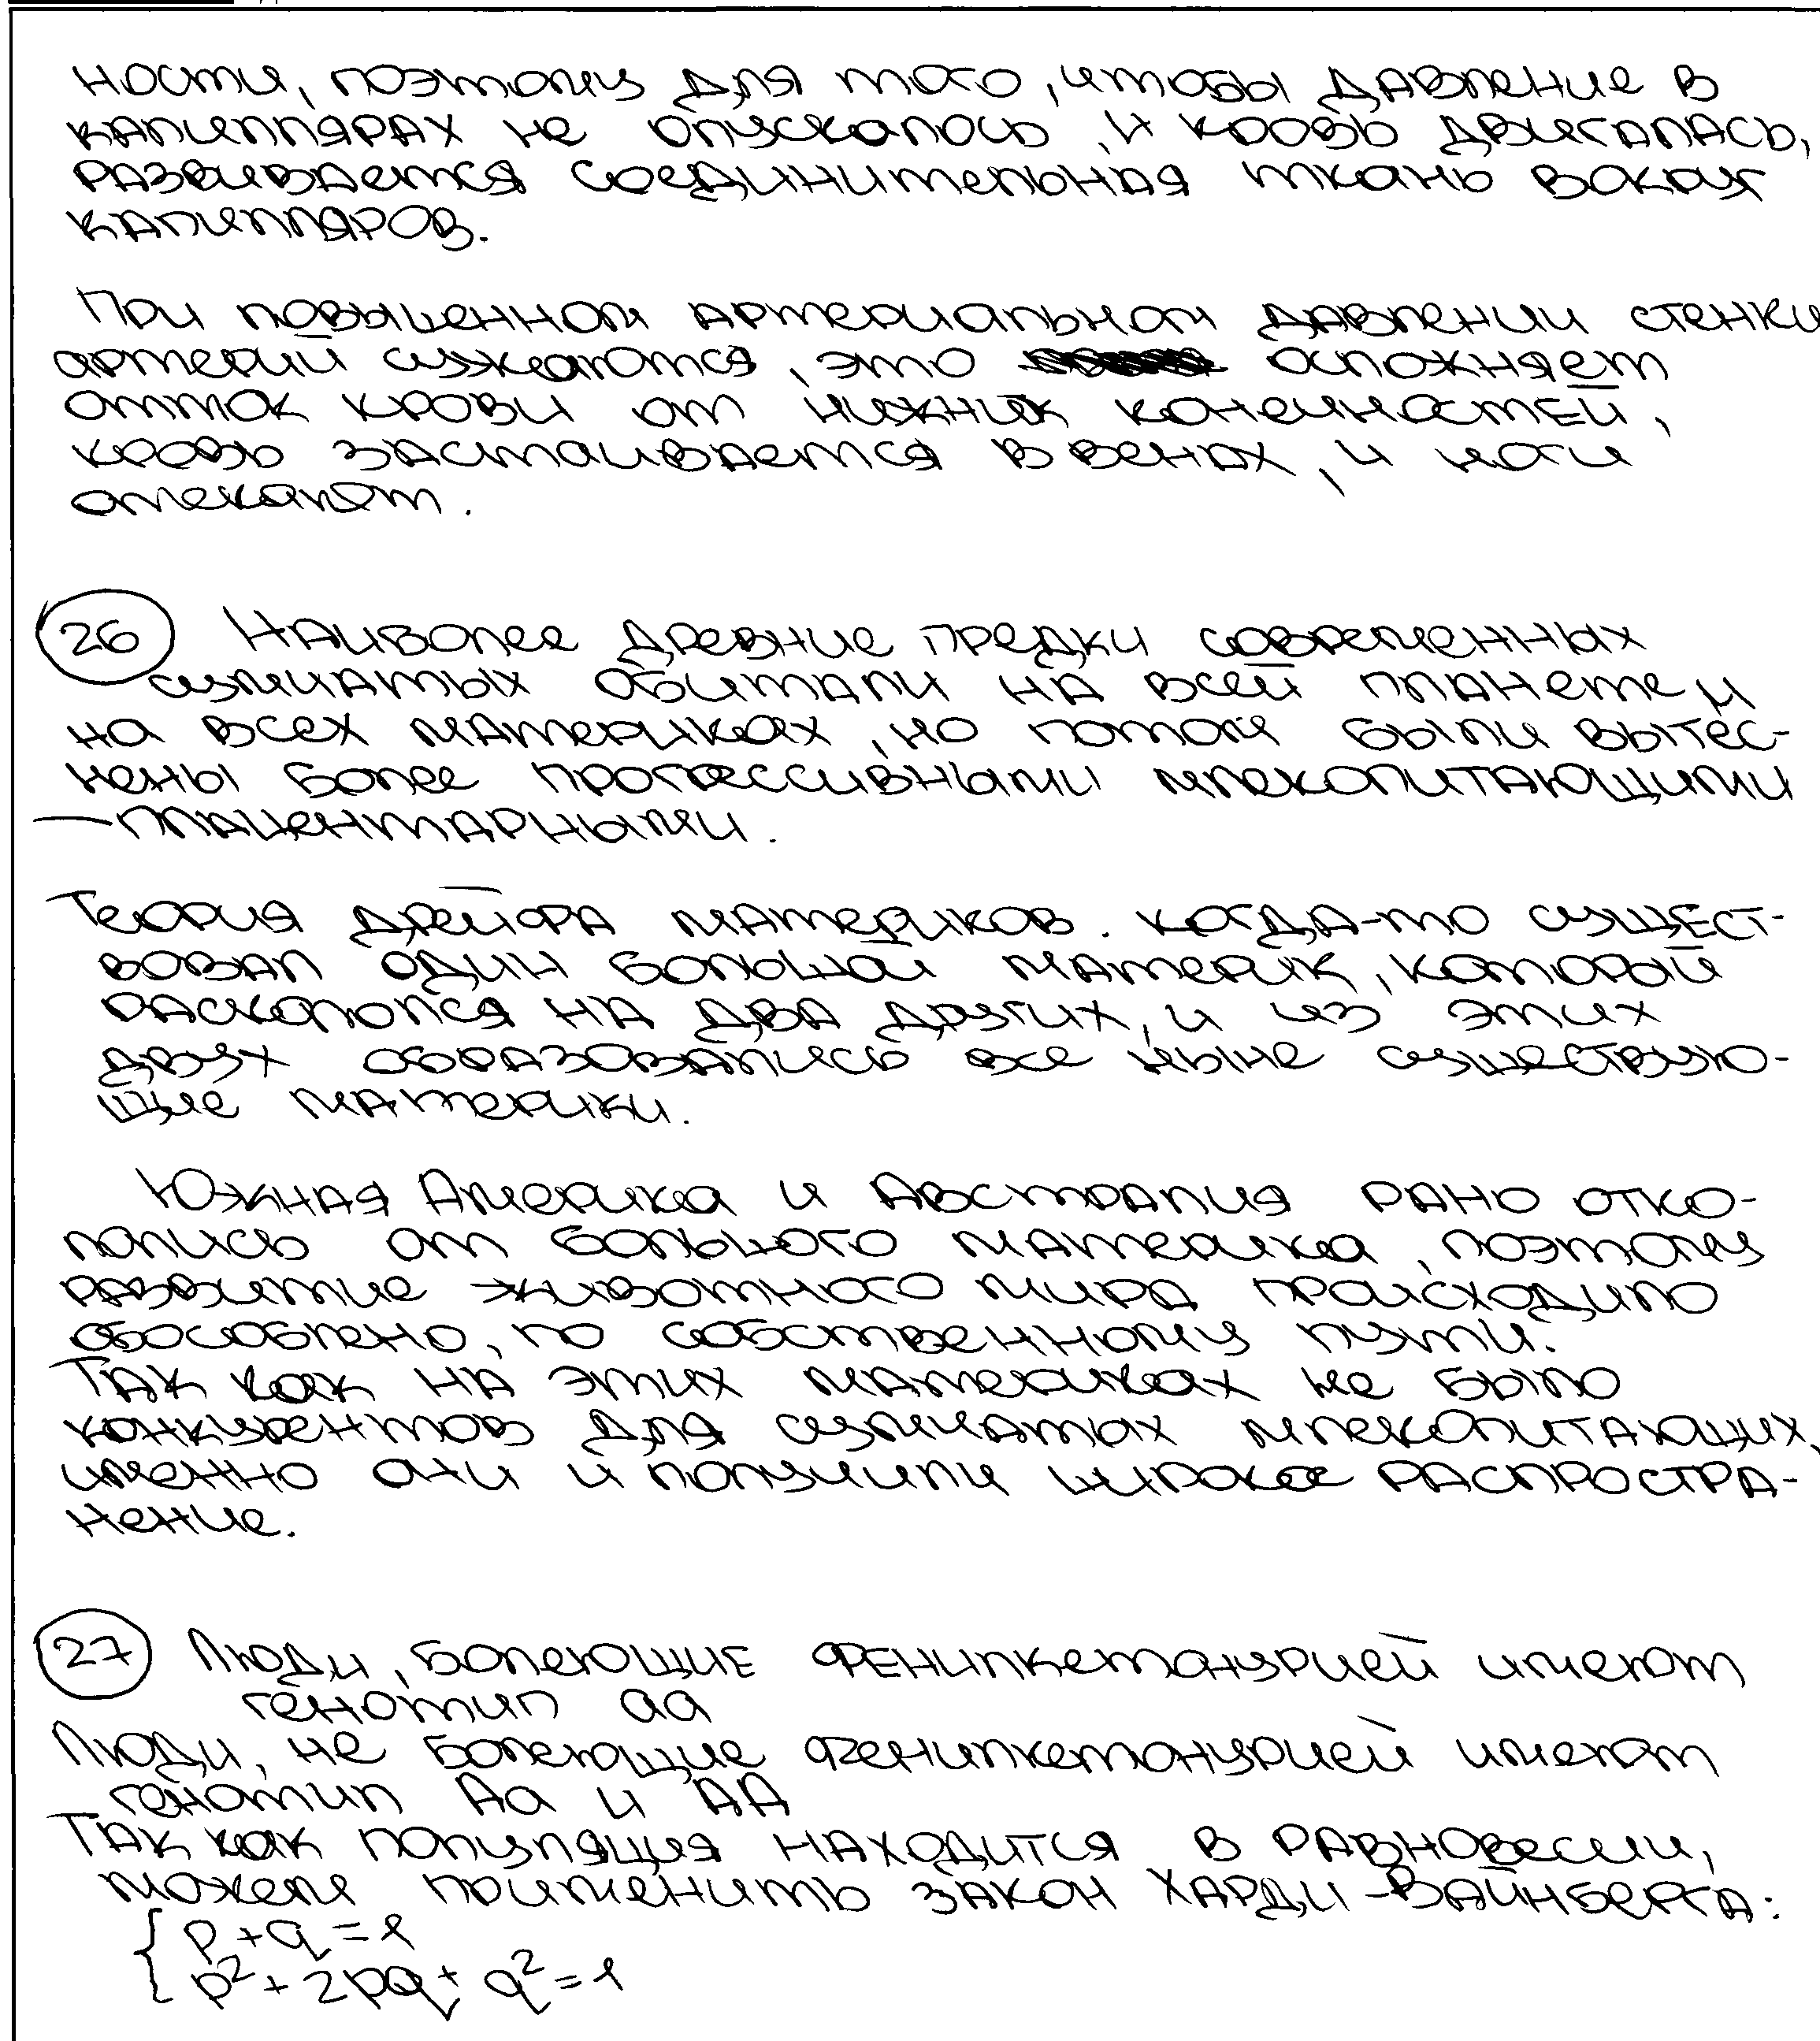 ности, поэтому для того, чтобы давление в
капиллярах не опускалось, и кровь двигалась,
развивается соединительная ткань вокруг
капилляров.
При повышенном артериальном давлении стенки
артерий сужаются, это осложняет
отток крови от нижник конечностей,
кровь застаивается в венах, и ноги
отекают.
26 Наиболее древние предки современных
сумчатых обитали на всей планете и
на всех материках, но потом были вытес-
нены более прогрессивными млекопитающими
— плацентарными.
Теория дрейфа материков. Когда-то сущест-
вовал один большой материк, который
раскололся на два других, и из этих
двух образовались все ныне существую-
щие материки.
Южная Америка и Австралия рано отко-
лолись от большого материка, поэтому
развитие животного мира происходило
обособлено, по собственному пути.
Так как на этих материках не было
конкурентов для сумчатах млекопитающих,
именно они и получили широкое распростра-
нение.
27 Люди, болеющие фенилкетонурией имеют
генотип aa
Люди, не болеющие фенилкетонурией имеют
генотип Aa и AA
Так как популяция находится в равновесии,
можем применить закон Харди-Вайнберга:
p + q = 1
p² + 2pq + q² = 1